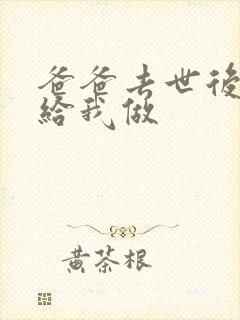 爸爸去世後
給我做
黃茶根